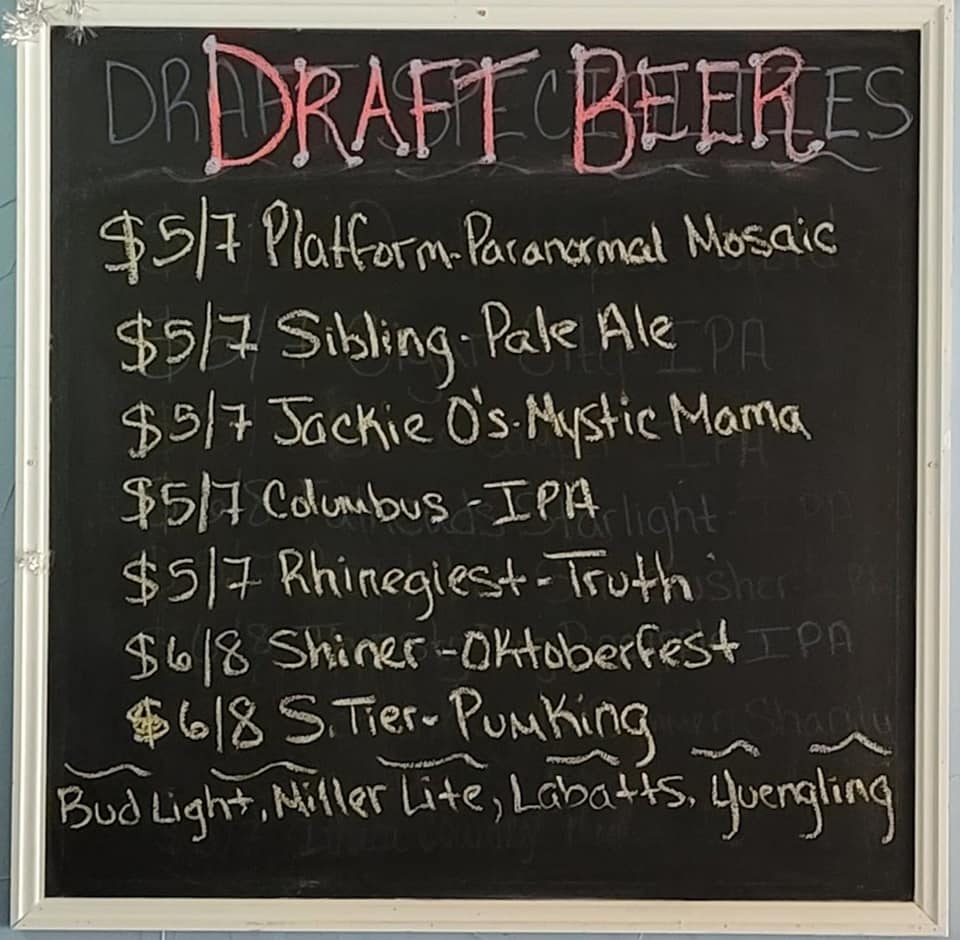 DRAFT BEER
$5/7 Platform-Paranormal Mosaic
$5/7 Sibling-Pale Ale
$5/7 Jackie O's-Mystic Mama
$5/7 Columbus-IPA
$5/7 Rhinegiest-Truth
$6/8 Shiner-Oktoberfest
$6/8 S.Tier-Pumking
Bud Light, Miller Lite, Labatts, Yuengling